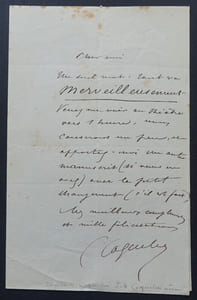 Mon ami
Un seul mot : tout va
Merveilleusement
Venez me voir au théâtre
vers 1 heures, nous
causerons un peu, et
apportez-moi un autre
manuscrit (si vous en
avez) avec le petit
changement (s'il est fait)
Mes meilleurs compliments
et mille félicitations
Coquelin